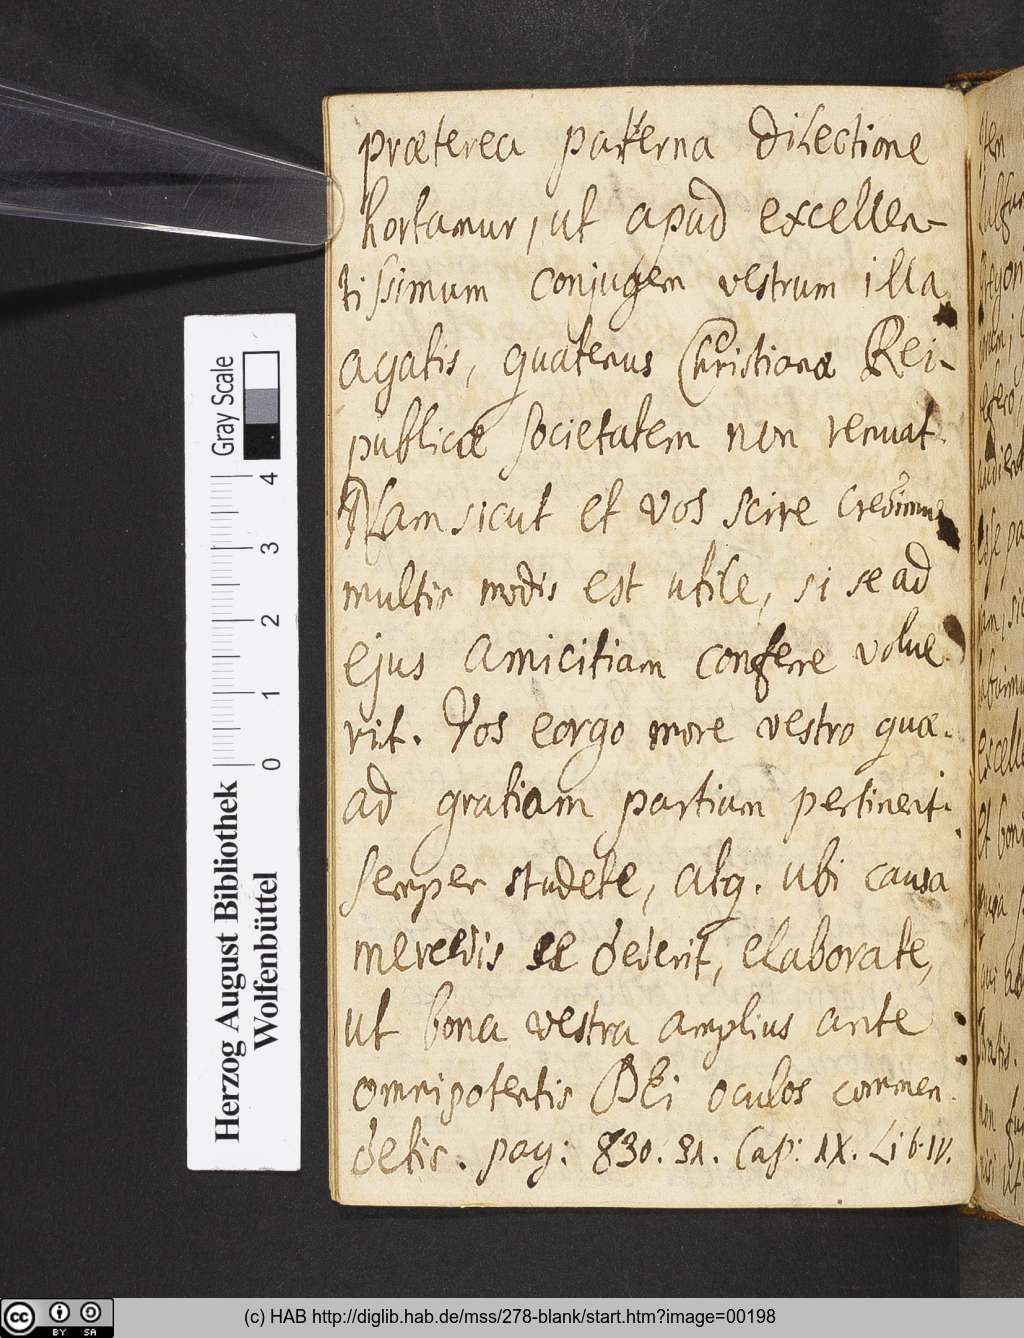 præterea paterna dilectione
hortamur, ut apud excellen-
tissimum conjugem vestrum illa
agatis, quatenus Christianæ Rei-
publicæ societatem non renuat.
Nam sicut et vos scire credimus
multis modis est utile, si se ad
ejus amicitiam conferre volue
rit. Vos eorgo more vestro quæ
ad gratiam partium pertinent
semper studete, atq. ubi causa
mercedis se dederit, elaborate,
ut bona vestra amplius ante
omnipotentis DEi oculos commen
detis. pag: 830. 31. Cap: IX. Lib. IV.
Gray Scale
0 1 2 3 4
Herzog August Bibliothek
Wolfenbüttel
cc BY SA
(c) HAB http://diglib.hab.de/mss/278-blank/start.htm?image=00198